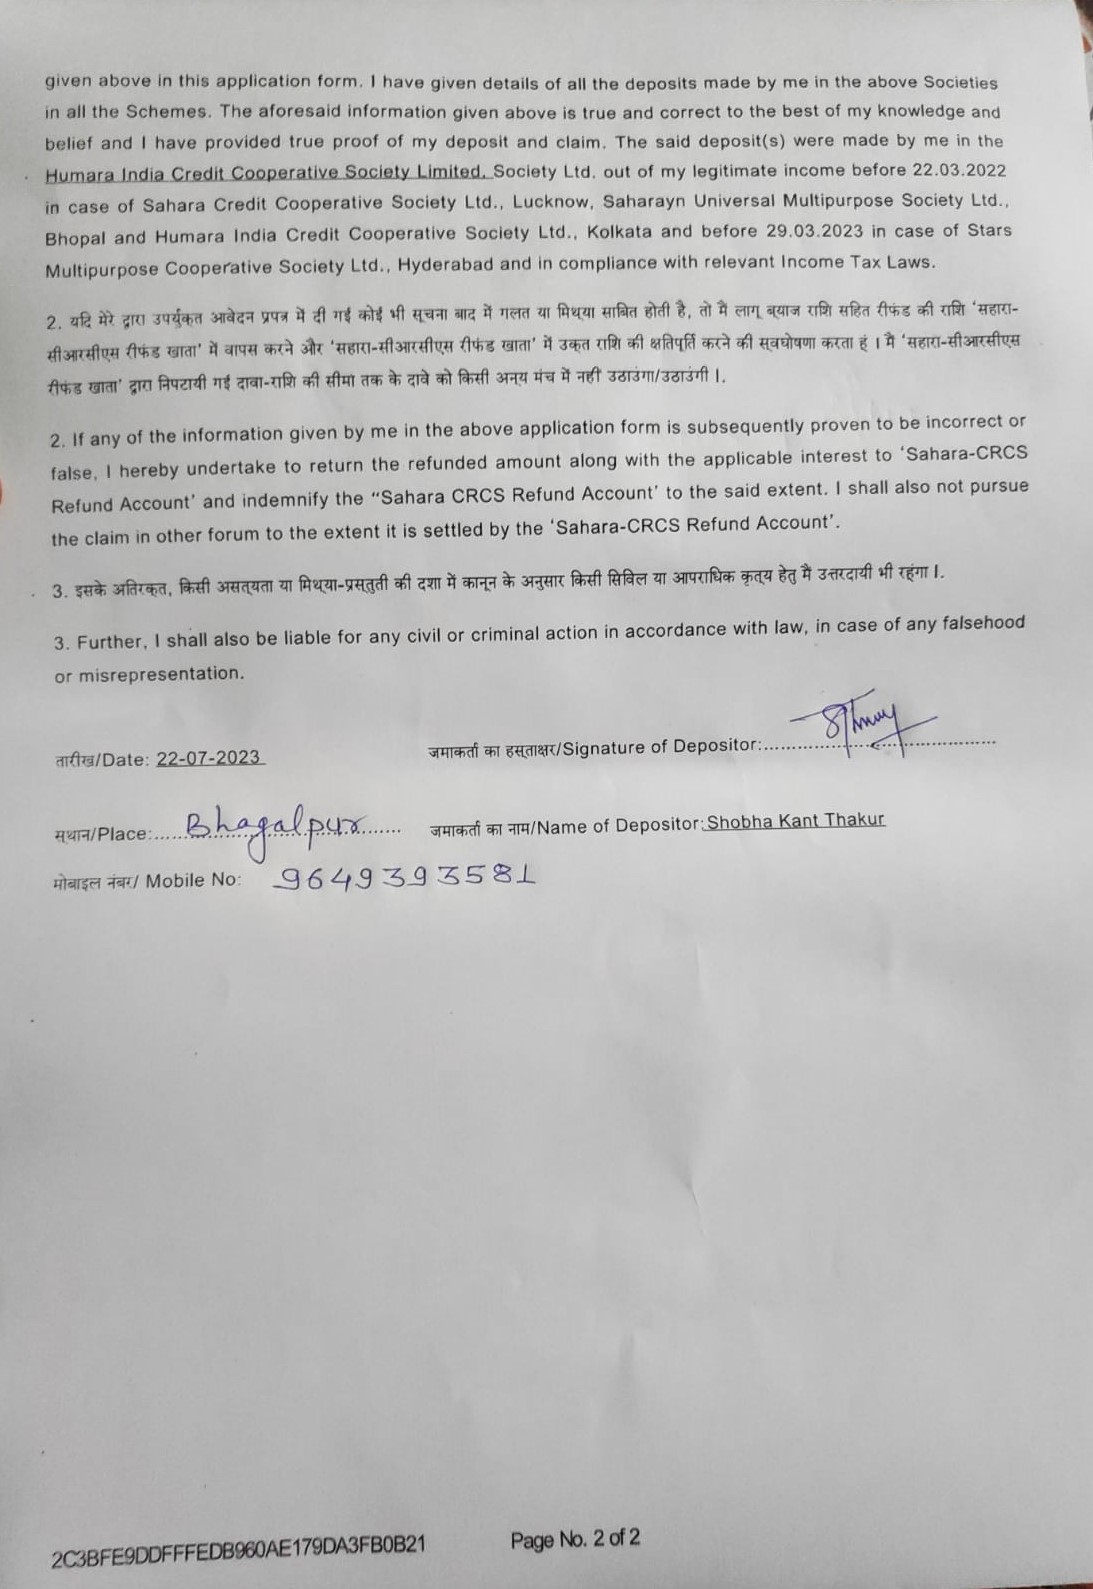 given above in this application form. I have given details of all the deposits made by me in the above Societies
in all the Schemes. The aforesaid information given above is true and correct to the best of my knowledge and
belief and I have provided true proof of my deposit and claim. The said deposit(s) were made by me in the
Humara India Credit Cooperative Society Limited. Society Ltd. out of my legitimate income before 22.03.2022
in case of Sahara Credit Cooperative Society Ltd., Lucknow, Saharayn Universal Multipurpose Society Ltd.,
Bhopal and Humara India Credit Cooperative Society Ltd., Kolkata and before 29.03.2023 in case of Stars
Multipurpose Cooperative Society Ltd., Hyderabad and in compliance with relevant Income Tax Laws.
2. यदि मेरे द्वारा उपर्युक्त आवेदन प्रपत्र में दी गई कोई भी सूचना बाद में गलत या मिथ्या साबित होती है, तो मैं लागू ब्याज राशि सहित रीफंड की राशि 'सहारा-
सीआरसीएस रीफंड खाता' में वापस करने और 'सहारा-सीआरसीएस रीफंड खाता' में उक्त राशि की क्षतिपूर्ति करने की स्वघोषणा करता हं । मैं 'सहारा-सीआरसीएस
रीफंड खाता' द्वारा निपटायी गई दावा-राशि की सीमा तक के दावे को किसी अन्य मंच में नहीं उठाउंगा/उठाउंगी ।.
2. If any of the information given by me in the above application form is subsequently proven to be incorrect or
false, I hereby undertake to return the refunded amount along with the applicable interest to 'Sahara-CRCS
Refund Account' and indemnify the "Sahara CRCS Refund Account' to the said extent. I shall also not pursue
the claim in other forum to the extent it is settled by the 'Sahara-CRCS Refund Account'.
3. इसके अतिरक्त, किसी असत्यता या मिथ्या-प्रस्तुती की दशा में कानून के अनुसार किसी सिविल या आपराधिक कृत्य हेतु मैं उत्तरदायी भी रहंगा ।.
3. Further, I shall also be liable for any civil or criminal action in accordance with law, in case of any falsehood
or misrepresentation.
तारीख/Date: 22-07-2023 जमाकर्ता का हस्ताक्षर/Signature of Depositor:
स्थान/Place: Bhagalpur जमाकर्ता का नाम/Name of Depositor: Shobha Kant Thakur
मोबाइल नंबर/ Mobile No: 9649393581
2C3BFE9DDFFFEDB960AE179DA3FB0B21 Page No. 2 of 2